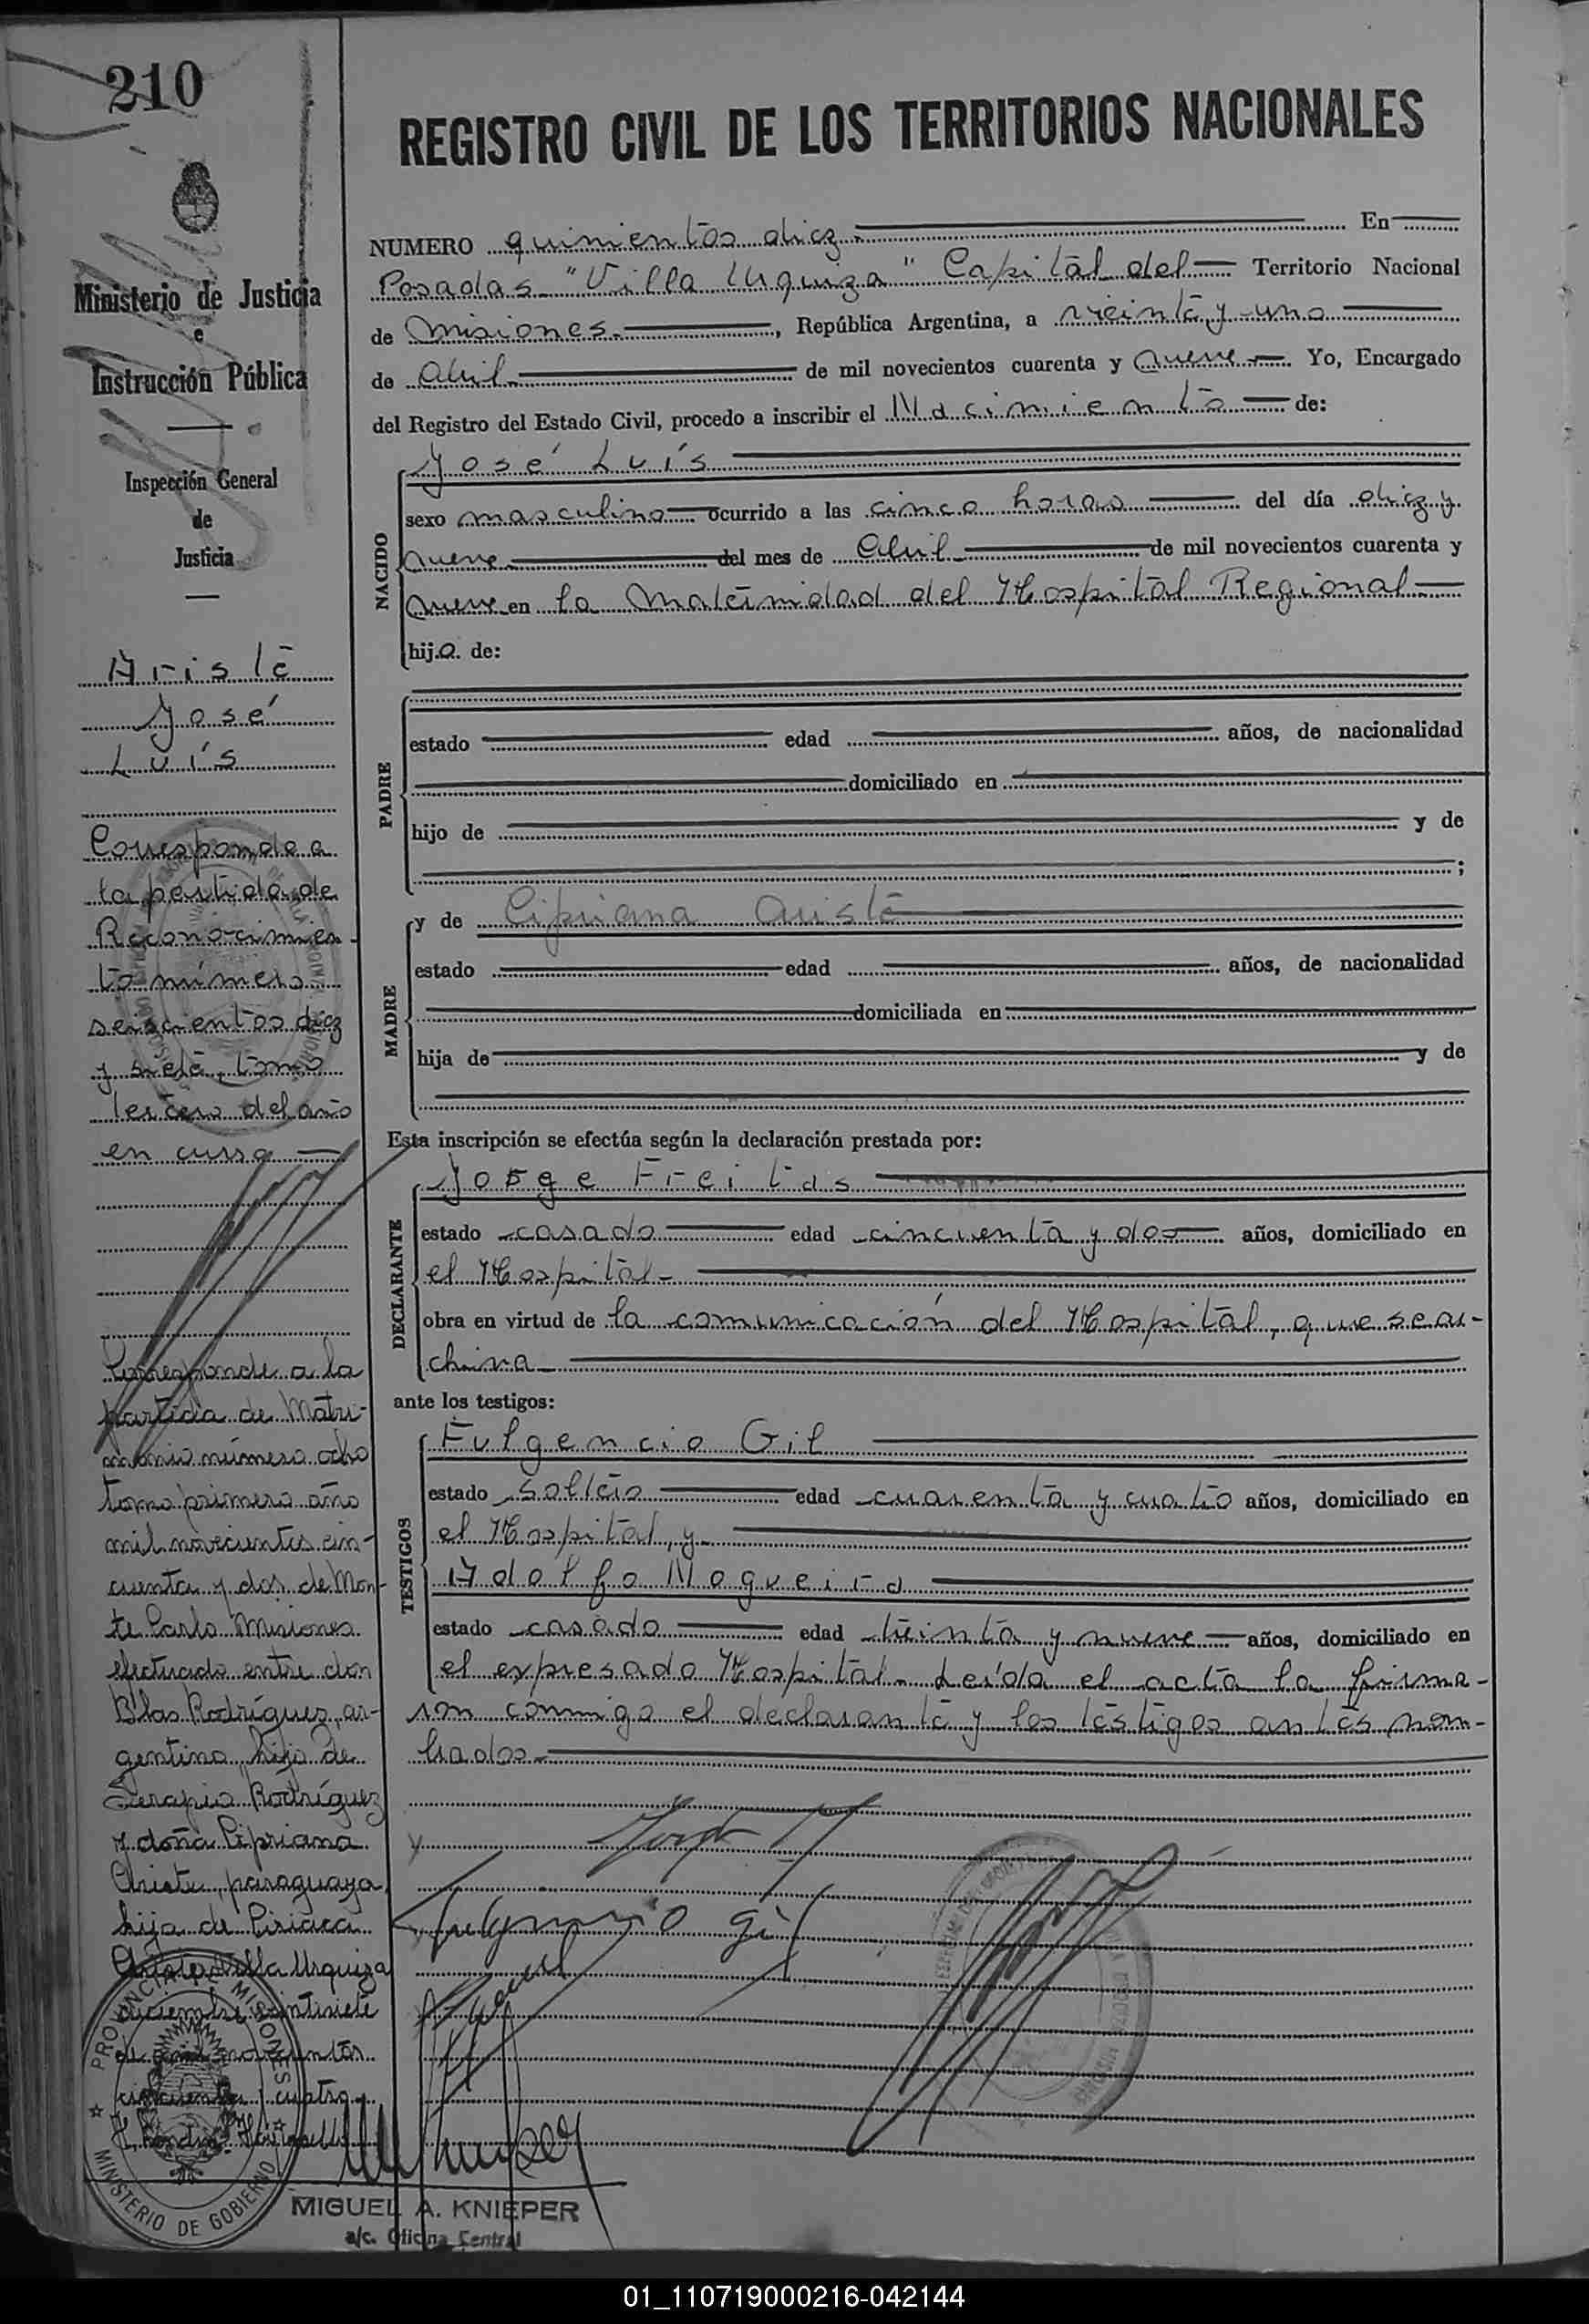 210
Ministerio de Justicia
e
Instrucción Pública
Inspección General
de
Justicia
Ariste
José
Luís
Corresponde a
la partida de
Reconocimien-
to número
seiscientos diez
y siete, tomo
tercero del año
en curso
Corresponde a la
partida de Matri-
monio número ocho
tomo primero año
mil novecientos cin-
cuenta y dos de Mon-
te Carlo Misiones
efectuado entre don
Blas Rodríguez, ar-
gentino, hijo de
Serapio Rodríguez
y doña Cipriana
Ariste, paraguaya,
hija de Ciriaca
Ariste, Villa Urquiza
diciembre veintisiete
de mil novecientos
cincuenta y cuatro
PROVINCIA DE MISIONES
MINISTERIO DE GOBIERNO
REGISTRO CIVIL DE LOS TERRITORIOS NACIONALES
NUMERO quinientos diez. En
Posadas "Villa Urquiza" Capital del Territorio Nacional
de Misiones, República Argentina, a veinte y uno
de Abril de mil novecientos cuarenta y nueve Yo, Encargado
del Registro del Estado Civil, procedo a inscribir el Nacimiento de:
NACIDO
José Luís
sexo masculino ocurrido a las cinco horas del día diez y
nueve del mes de Abril de mil novecientos cuarenta y
nueve en la Maternidad del Hospital Regional
hijo de:
PADRE
estado edad años, de nacionalidad
domiciliado en
hijo de y de
;
MADRE
y de Cipriana Ariste
estado edad años, de nacionalidad
domiciliada en
hija de y de
Esta inscripción se efectúa según la declaración prestada por:
DECLARANTE
Jorge Freitas
estado casado edad cincuenta y dos años, domiciliado en
el Hospital
obra en virtud de la comunicación del Hospital, que se ar-
chiva
ante los testigos:
TESTIGOS
Fulgencio Gil
estado soltero edad cuarenta y cuatro años, domiciliado en
el Hospital, y
Adolfo Nogueira
estado casado edad treinta y nueve años, domiciliado en
el expresado Hospital. Leída el acta la firma-
ron conmigo el declarante y los testigos antes nom-
brados
Fulgencio Gil
MIGUEL A. KNIEPER
a/c. Oficina Central
01_110719000216-042144